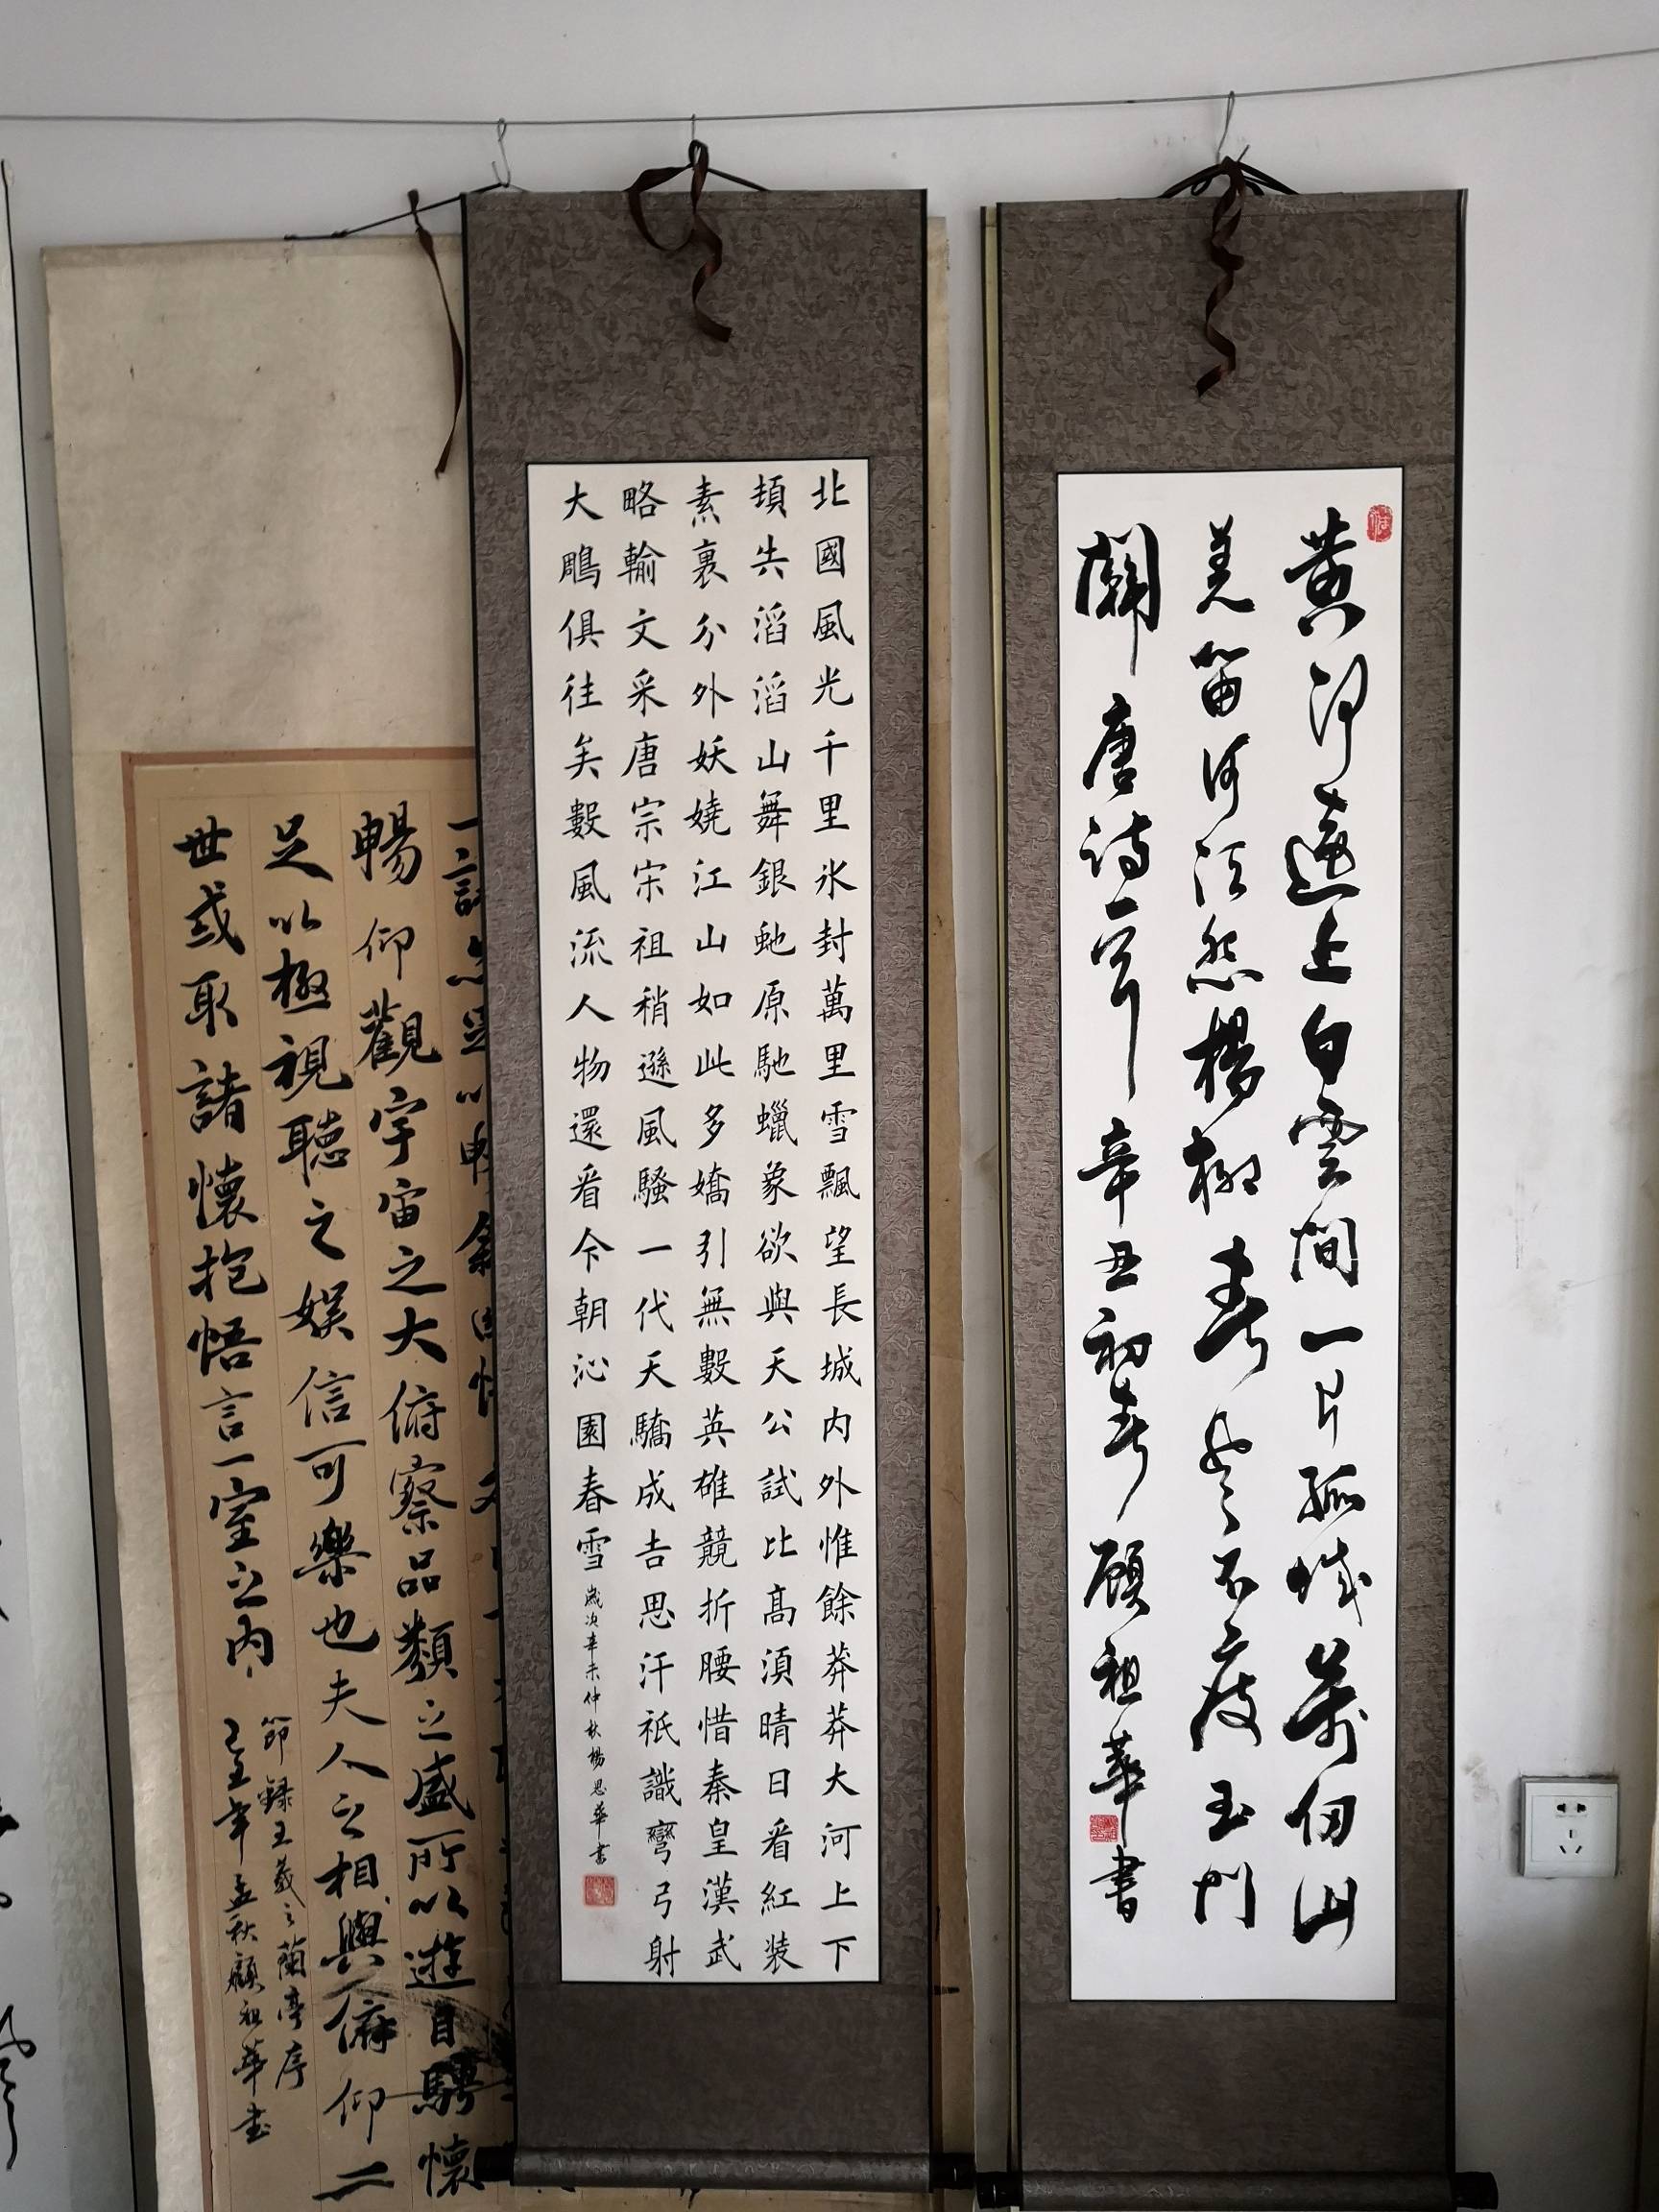 黄河遠上白雲間一片孤城萬仞山
羌笛何須怨楊柳春風不度玉門
關 唐詩一首 辛丑初春 顧祖華書
北國風光千里氷封萬里雪飄望長城内外惟餘莽莽大河上下
頓失滔滔山舞銀虵原馳蠟象欲與天公試比高須晴日看紅装
素裹分外妖嬈江山如此多嬌引無數英雄競折腰惜秦皇漢武
略輸文采唐宗宋祖稍遜風騷一代天驕成吉思汗祇識彎弓射
大鵰俱往矣數風流人物還看今朝沁園春雪 歲次辛未仲秋楊思華書
暢仰觀宇宙之大俯察品類之盛所以遊目騁懷
足以極視聴之娯信可樂也夫人之相與俯仰一
世或取諸懷抱悟言一室之内
節録王羲之蘭亭序
孟秋顧祖華書